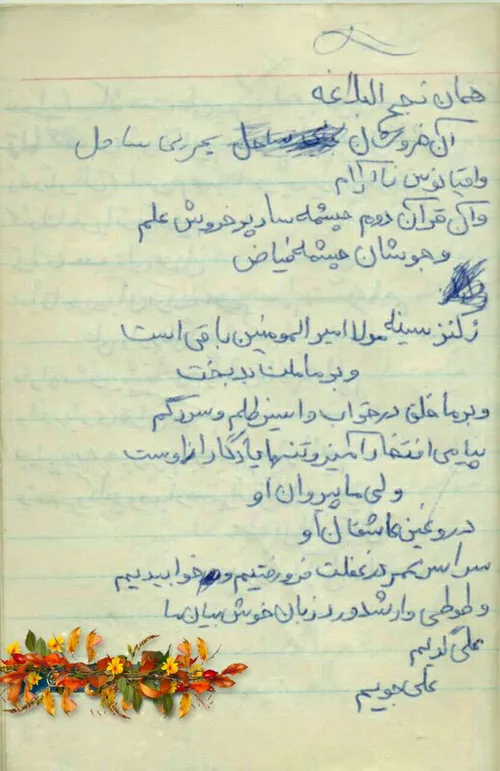 همان نهج البلاغه
آن خروشان بحر بی ساحل
واقیانوس ناآرام
وآن قرآن دوم چشمه سار پر خروش علم
و جوشان چشمه فیاض
ز کنز سینه مولا امیرالمومنین باقی است
و بر ما ملت بدبخت
و بر ما خلق در خواب و اسیر ظلم و سردرگم
پیامی افتخار آمیز و تنها یادگار از اوست
ولی ما پیروان او
دروغین عاشقان او
سراسر عمر در غفلت فرو رفتیم و خوابیدیم
و طوطی وار شد ورد زبان خوش بیان ما
علی گوییم
علی جوییم